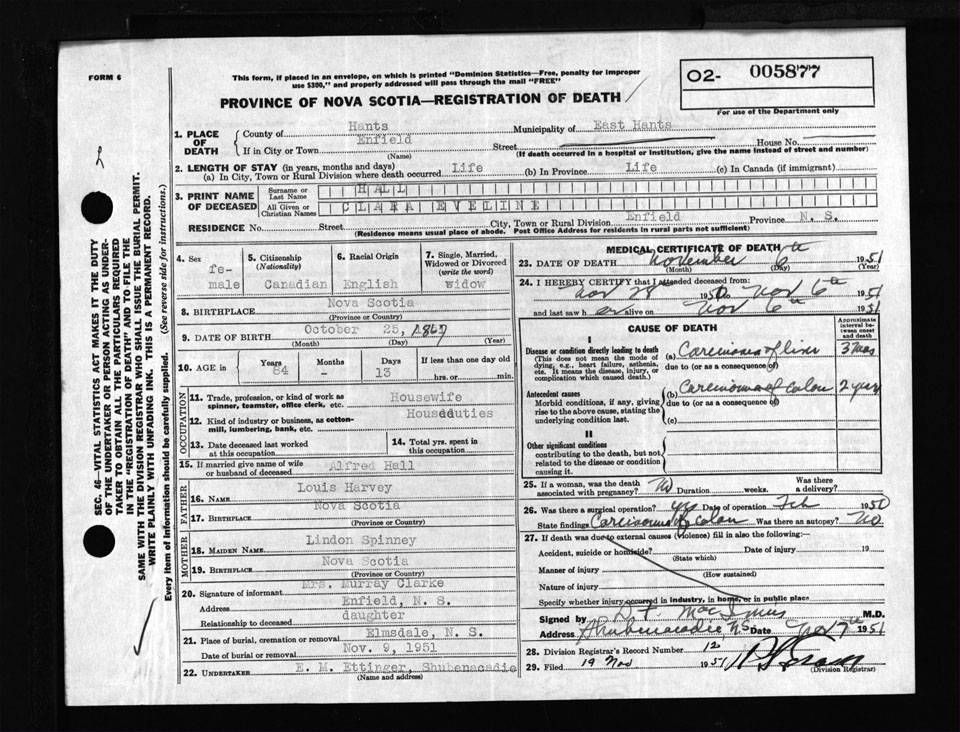 FORM 6
This form, if placed in an envelope, on which is printed "Dominion Statistics—Free, penalty for improper
use $300," and properly addressed will pass through the mail "FREE"
PROVINCE OF NOVA SCOTIA—REGISTRATION OF DEATH
O2- 005877
For use of the Department only
1. PLACE OF DEATH County of Hants Municipality of East Hants
If in City or Town Enfield Street House No.
(Name) (If death occurred in a hospital or institution, give the name instead of street and number)
2. LENGTH OF STAY (in years, months and days)
(a) In City, Town or Rural Division where death occurred Life (b) In Province Life (c) In Canada (if immigrant)
3. PRINT NAME OF DECEASED Surname or Last Name HALL
All Given or Christian Names CLARA EVELINE
RESIDENCE No. Street City, Town or Rural Division Enfield Province N. S.
(Residence means usual place of abode. Post Office Address for residents in rural parts not sufficient)
4. Sex female
5. Citizenship (Nationality) Canadian
6. Racial Origin English
7. Single, Married, Widowed or Divorced (write the word) widow
8. BIRTHPLACE Nova Scotia
(Province or Country)
9. DATE OF BIRTH October 25, 1867
(Month) (Day) (Year)
10. AGE in Years 84 Months - Days 13 If less than one day old hrs. or min.
OCCUPATION
11. Trade, profession, or kind of work as spinner, teamster, office clerk, etc. Housewife
12. Kind of industry or business, as cotton-mill, lumbering, bank, etc. Houseduties
13. Date deceased last worked at this occupation
14. Total yrs. spent in this occupation
15. If married give name of wife or husband of deceased Alfred Hall
FATHER
16. NAME Louis Harvey
17. BIRTHPLACE Nova Scotia
(Province or Country)
MOTHER
18. MAIDEN NAME Lindon Spinney
19. BIRTHPLACE Nova Scotia
(Province or Country)
20. Signature of informant Mrs. Murray Clarke
Address Enfield, N. S.
Relationship to deceased daughter
21. Place of burial, cremation or removal Elmsdale, N. S.
Date of burial or removal Nov. 9, 1951
22. UNDERTAKER E. M. Ettinger, Shubenacadie
(Name and address)
MEDICAL CERTIFICATE OF DEATH
23. DATE OF DEATH November 6th 1951
(Month) (Day) (Year)
24. I HEREBY CERTIFY that I attended deceased from:
Nov 28 1950 to Nov 6th 1951
and last saw her alive on Nov 6th 1951
CAUSE OF DEATH
Approximate interval between onset and death
I
Disease or condition directly leading to death (a) Carcinoma of liver 3 mos
(This does not mean the mode of dying, e.g., heart failure, asthenia, etc. It means the disease, injury, or complication which caused death.)
due to (or as a consequence of)
Antecedent causes (b) Carcinoma of colon 2 yrs
Morbid conditions, if any, giving rise to the above cause, stating the underlying condition last.
due to (or as a consequence of)
(c)
II
Other significant conditions contributing to the death, but not related to the disease or condition causing it.
25. If a woman, was the death associated with pregnancy? No Duration weeks. Was there a delivery?
26. Was there a surgical operation? yes Date of operation Feb 1950
State findings Carcinoma of colon Was there an autopsy? No
27. If death was due to external causes (violence) fill in also the following:—
Accident, suicide or homicide? Date of injury 19
(State which)
Manner of injury
(How sustained)
Nature of injury
Specify whether injury occurred in industry, in home, or in public place
Signed by M.D.
Address Shubenacadie, N.S. Date Nov 7th 1951
28. Division Registrar's Record Number 12
29. Filed 19 Nov 1951
(Division Registrar)
SEC. 46—VITAL STATISTICS ACT MAKES IT THE DUTY
OF THE UNDERTAKER OR PERSON ACTING AS UNDER-
TAKER TO OBTAIN ALL THE PARTICULARS REQUIRED
IN THE "REGISTRATION OF DEATH" AND TO FILE THE
SAME WITH THE DIVISION REGISTRAR WHO SHALL ISSUE THE BURIAL PERMIT.
WRITE PLAINLY WITH UNFADING INK. THIS IS A PERMANENT RECORD.
Every item of information should be carefully supplied. (See reverse side for instructions.)